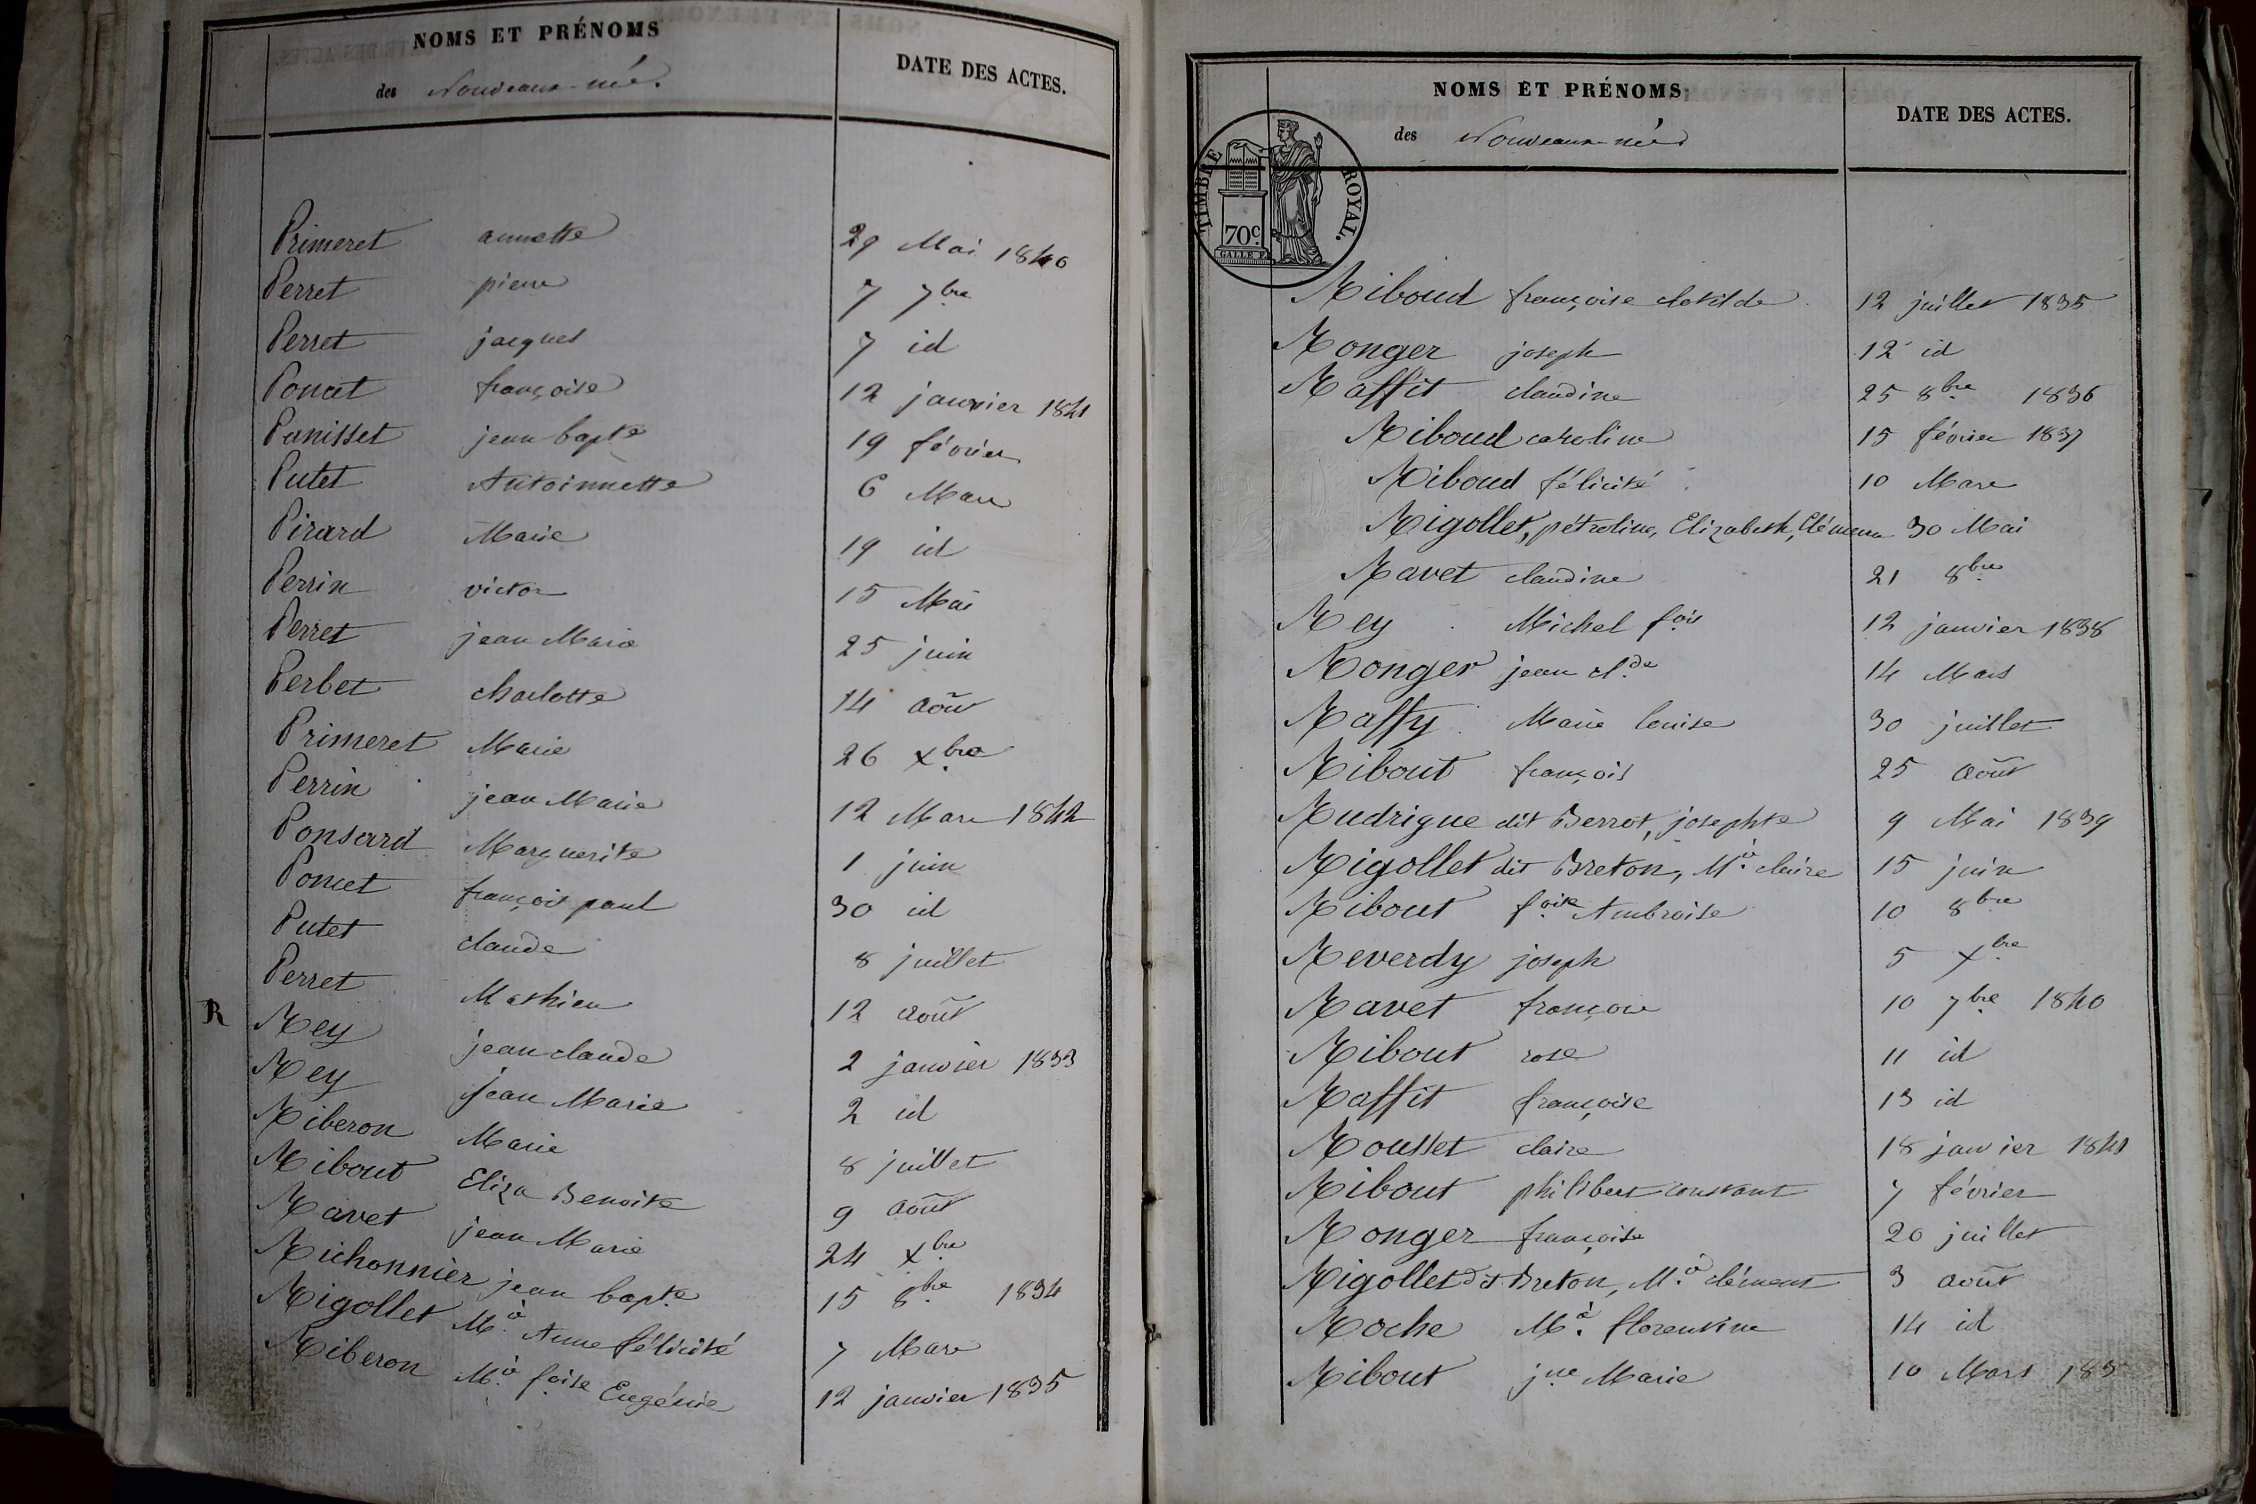 NOMS ET PRÉNOMS
des Nouveaux-nés.
DATE DES ACTES.
Primeret annette 29 Mai 1840
Perret pierre 7 7bre
Perret jacques 7 id
Poncet françoise 12 janvier 1841
Panisset jean bapte 19 février
Putet Antoinnette 6 Mars
Pirard Marie 19 id
Perrin victor 15 Mai
Perret jean Marie 25 juin
Perbet charlotte 14 août
Primeret Marie 26 xbre
Perrin jean Marie 12 Mars 1842
Ponsard Marguerite 1 juin
Poncet françois paul 30 id
Putet claude 8 juillet
Perret Mathieu 12 août
R Rey jean claude 2 janvier 1833
Rey jean Marie 2 id
Riberon Marie 8 juillet
Ribout Eliza Benoite 9 août
Ravet jean Marie 24 xbre
Richonnier jean bapte 15 8bre 1834
Rigollet Mie Anne félicité 7 Mars
Riberon Mie foise Eugénie 12 janvier 1835
NOMS ET PRÉNOMS
des Nouveaux-nés
DATE DES ACTES.
TIMBRE ROYAL.
70c.
Riboud françoise clotilde 12 juillet 1835
Ronger joseph 12 id
Raffit claudine 25 8bre 1836
Riboud caroline 15 février 1837
Riboud félicité 10 Mars
Rigollet, pétroline, Elizabeth, Clémence 30 Mai
Ravet claudine 21 8bre
Rey Michel fois 12 janvier 1838
Ronger jean clde 14 Mars
Raffy Marie louise 30 juillet
Ribout françois 25 août
Rudrigue dit Berrot, josephte 9 Mai 1839
Rigollet dit Breton, Mie claire 15 juin
Ribout foise Ambroise 10 8bre
Reverdy joseph 5 xbre
Ravet françoise 10 7bre 1840
Ribout rose 11 id
Raffit françoise 13 id
Rousset claire 18 janvier 1841
Ribout philibert constant 7 février
Ronger françoise 20 juillet
Rigollet dt Breton, Mie clément 3 août
Roche Mie florentine 14 id
Ribout jne Marie 10 Mars 183